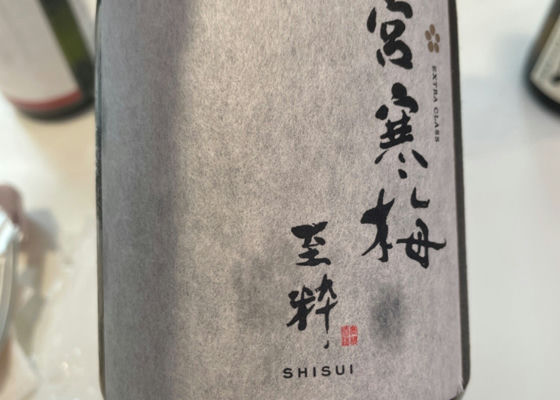 宮寒梅
EXTRA CLASS
至粋
SHISUI